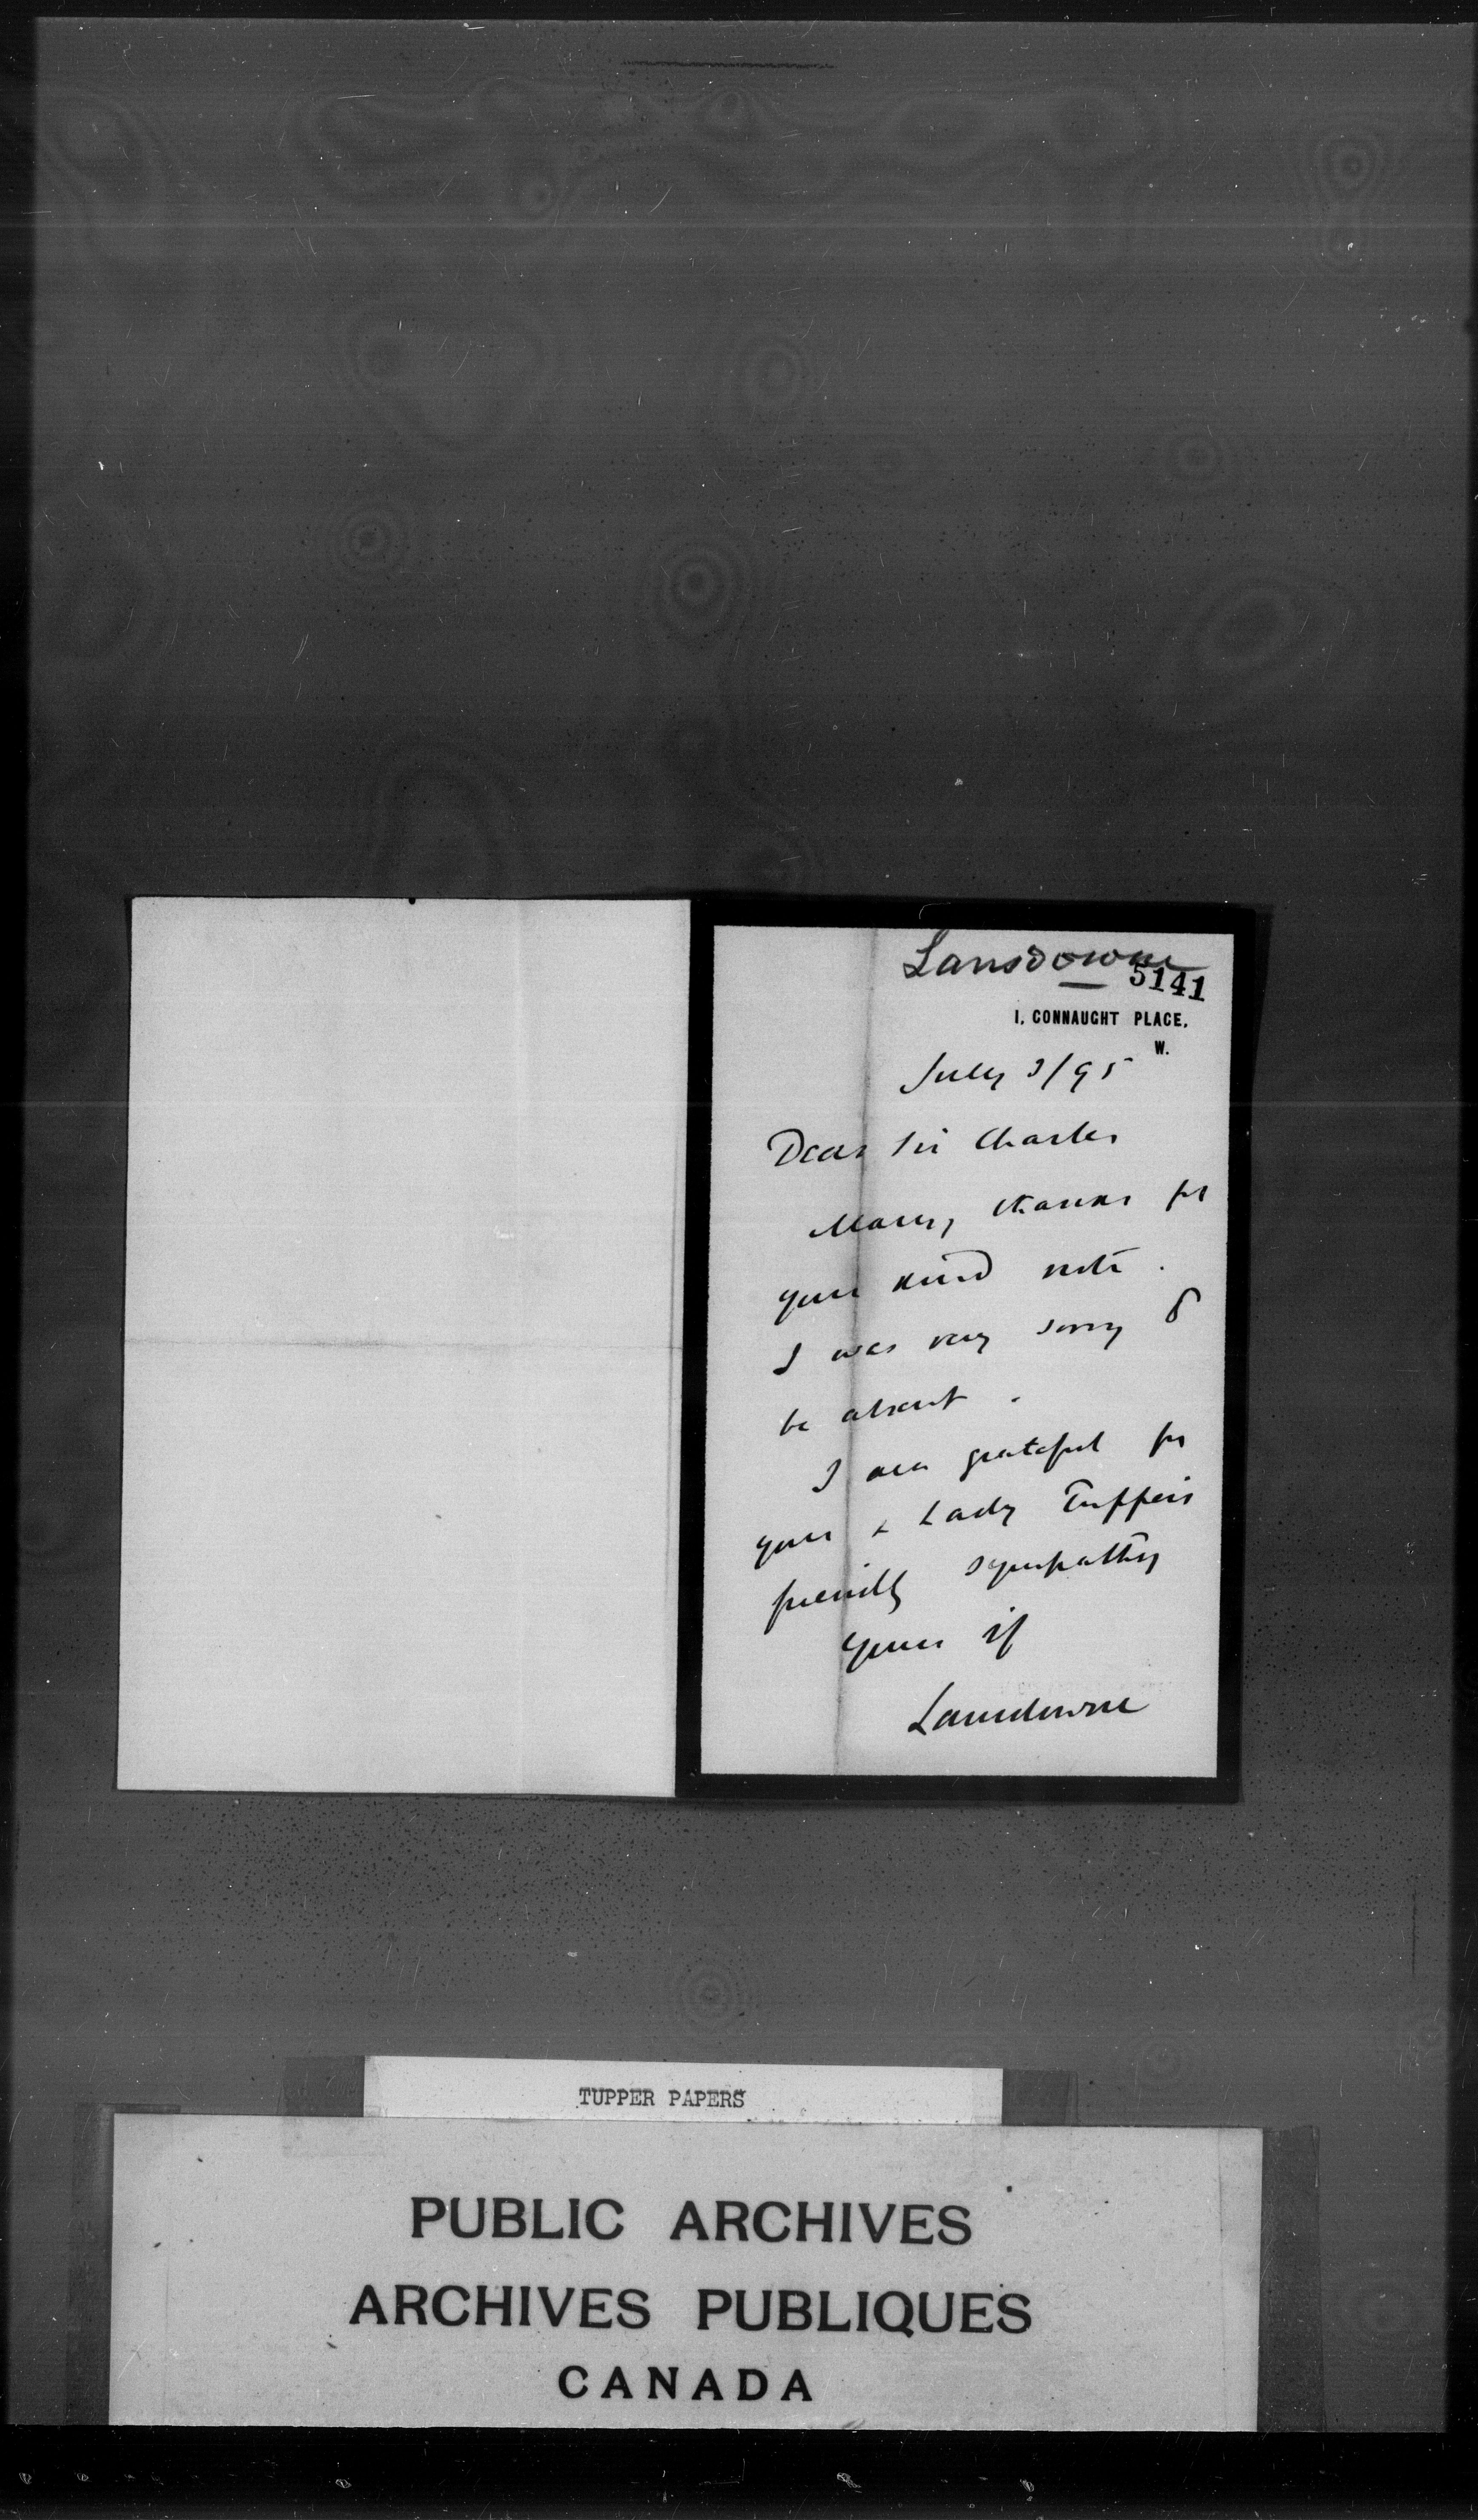 Lansdowne
5141
1, CONNAUGHT PLACE,
W.
July 3/95
Dear Sir Charles
Many thanks for
your kind note.
I was very sorry to
be absent.
I am grateful for
your & Lady Tupper's
friendly sympathy
Yours
Lansdowne
TUPPER PAPERS
PUBLIC ARCHIVES
ARCHIVES PUBLIQUES
CANADA